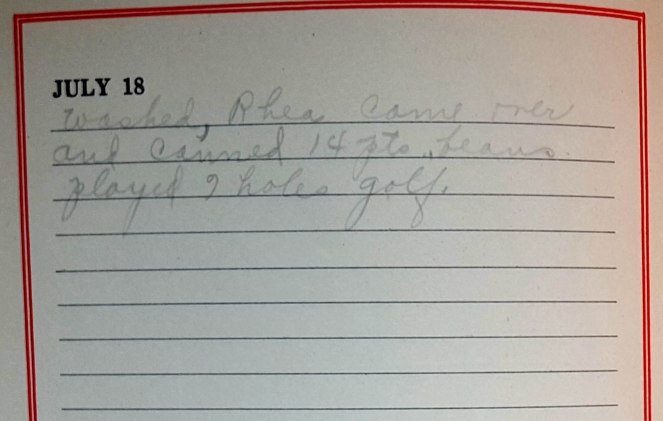 JULY 18
washed, Rhea came over
and canned 14 pts. beans.
played 9 holes golf.